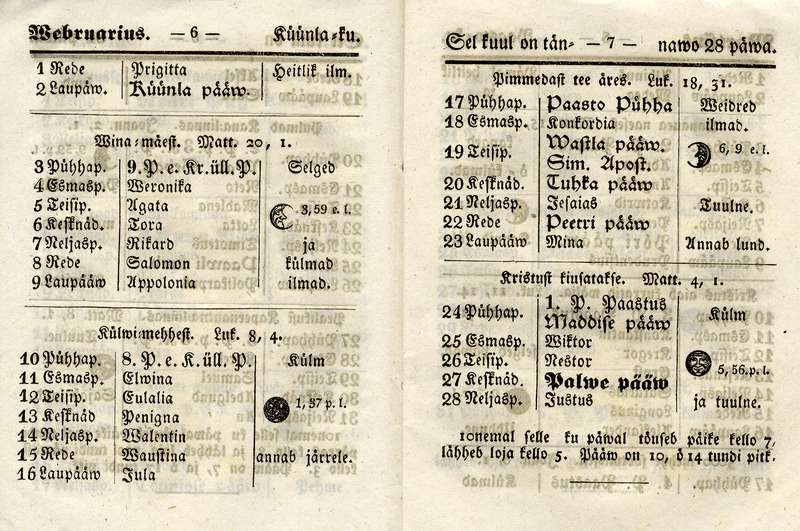 Webruarius. — 6 — Küünla-ku.
1 Rede Prigitta Heitlik ilm.
2 Laupäw. Küünla pääw.
Wina-mäest. Matt. 20, 1.
3 Pühhap. 9. P. e. Kr. üll. P. Selged
4 Esmasp. Weronika
5 Teisip. Agata
6 Kesknäd. Tora 3, 59 e. l.
7 Neljasp. Rikard ja
8 Rede Salomon külmad
9 Laupääw Appolonia ilmad.
Külwi-mehhest. Luk. 8, 4.
10 Pühhap. 8. P. e. K. üll. P. Külm
11 Esmasp. Elwina
12 Teisip. Eulalia
13 Kesknäd Penigna 1, 37 p. l.
14 Neljasp. Walentin
15 Rede Waustina annab järrele.
16 Laupääw Jula
Sel kuul on tän- — 7 — nawo 28 päwa.
Pimmedast tee äres. Luk. 18, 31.
17 Pühhap. Paasto Pühha Weidred
18 Esmasp. Konkordia ilmad.
19 Teisip. Wastla pääw. 6, 9 e. l.
Sim. Apost.
20 Kesknäd. Tuhka pääw
21 Neljasp. Jesaias Tuulne.
22 Rede Peetri pääw
23 Laupääw Mina Annab lund.
Kristust kiusatakse. Matt. 4, 1.
24 Pühhap. 1. P. Paastus Külm
Maddise pääw
25 Esmasp. Wiktor
26 Teisip. Nestor
27 Kesknäd. Palwe pääw 5, 56. p. l.
28 Neljasp. Justus ja tuulne.
10nemal selle ku päwal touseb päike kello 7,
lähheb loja kello 5. Pääw on 10, ö 14 tundi pitk.